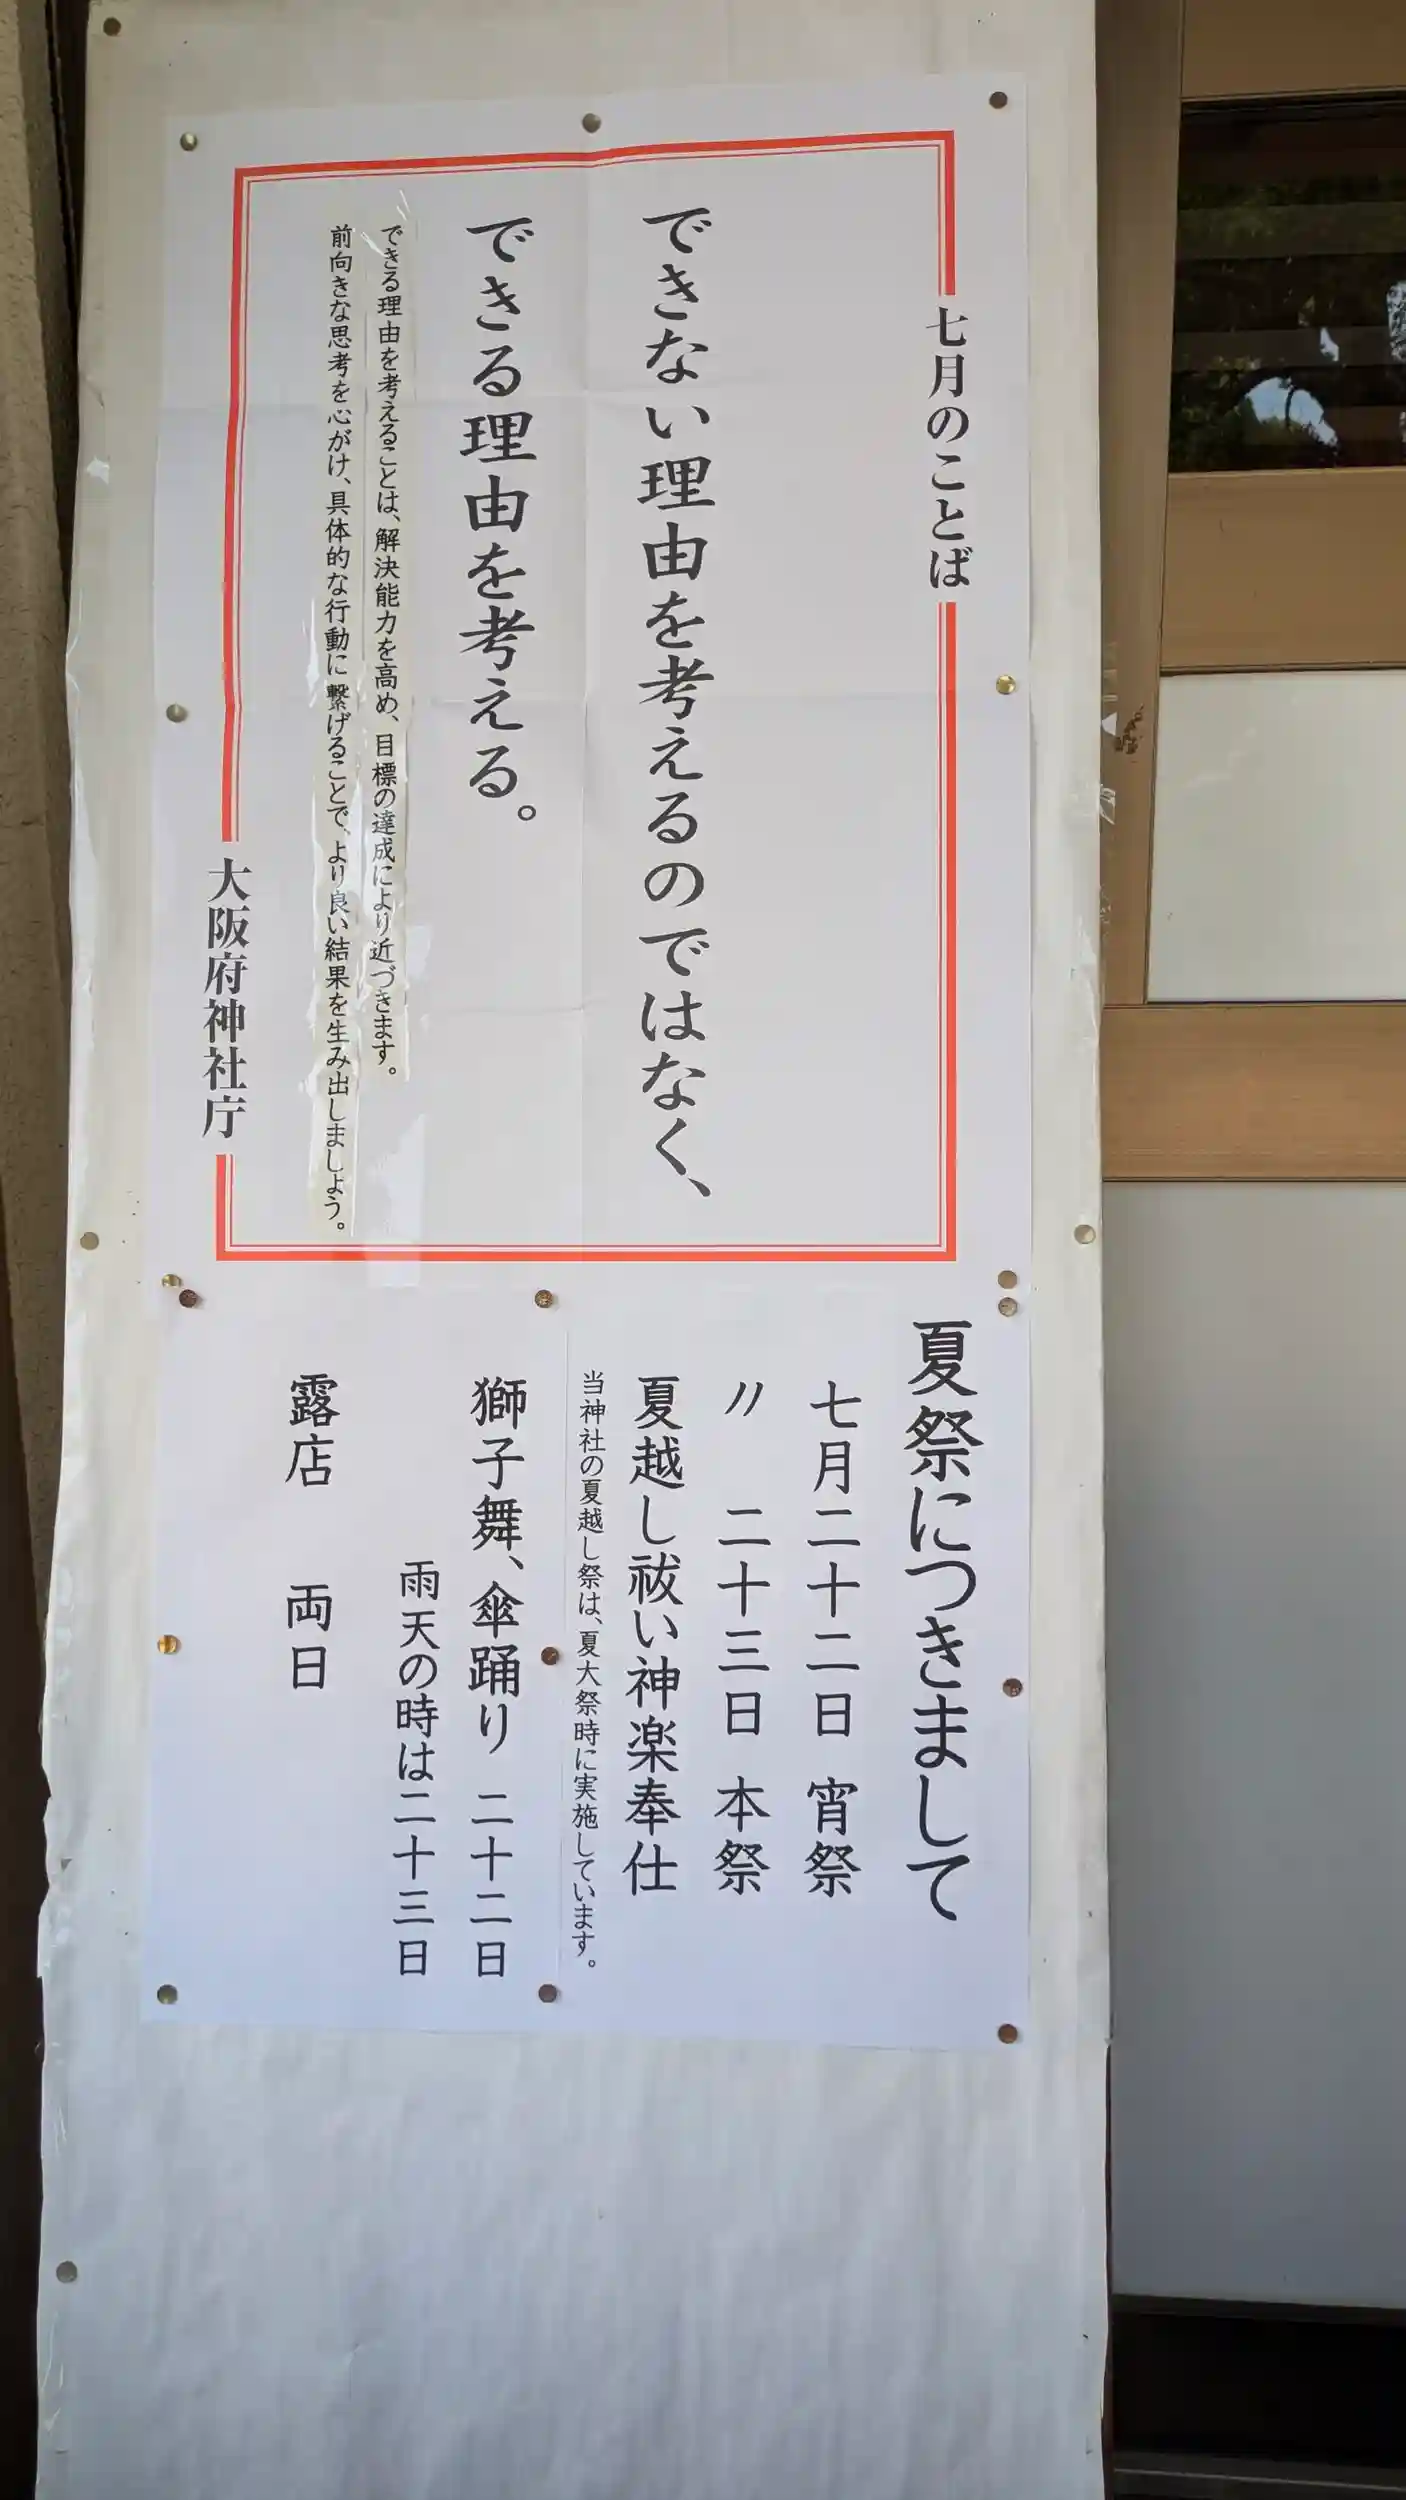 七月のことば
できない理由を考えるのではなく、
できる理由を考える。
できる理由を考えることは、解決能力を高め、目標の達成により近づきます。
前向きな思考を心がけ、具体的な行動に繋げることで、より良い結果を生み出しましょう。
大阪府神社庁
夏祭につきまして
七月二十二日 宵祭
〃 二十三日 本祭
夏越し祓い神楽奉仕
当神社の夏越し祭は、夏大祭時に実施しています。
獅子舞、傘踊り 二十二日
雨天の時は二十三日
露店 両日